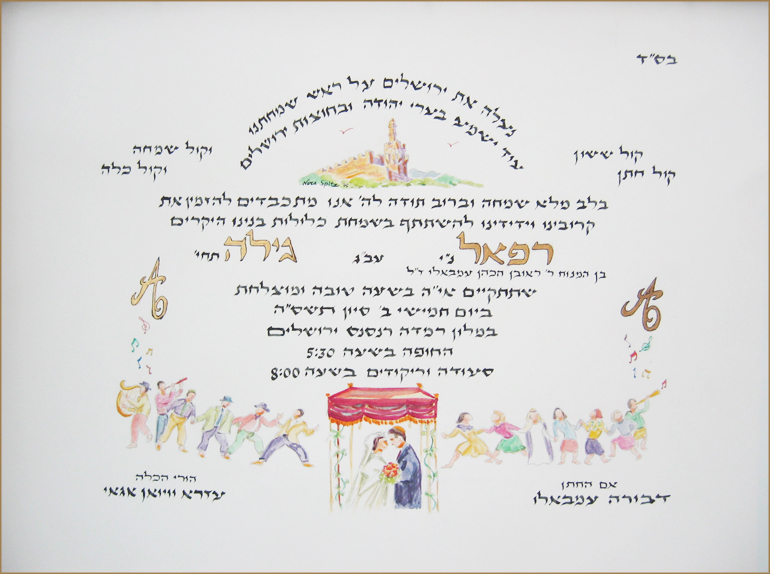 בס"ד
נעלה את ירושלים על ראש שמחתנו
עוד ישמע בערי יהודה ובחוצות ירושלים
קול ששון
וקול שמחה
קול חתן
וקול כלה
בלב מלא שמחה וברוב תודה לה' אנו מתכבדים להזמין את
קרובינו וידידינו להשתתף בשמחת כלולות בנינו היקרים
רפאל ני' עב"ג גילה תחי'
בן המנוח ר' ראובן הכהן עמבאלו ז"ל
שתתקיים אי"ה בשעה טובה ומוצלחת
ביום חמישי ב' סיון תשס"ה
במלון רמדה רנסנס ירושלים
החופה בשעה 5:30
סעודה וריקודים בשעה 8:00
אם החתן
דבורה עמבאלו
הורי הכלה
עזרא וויואן אגאי